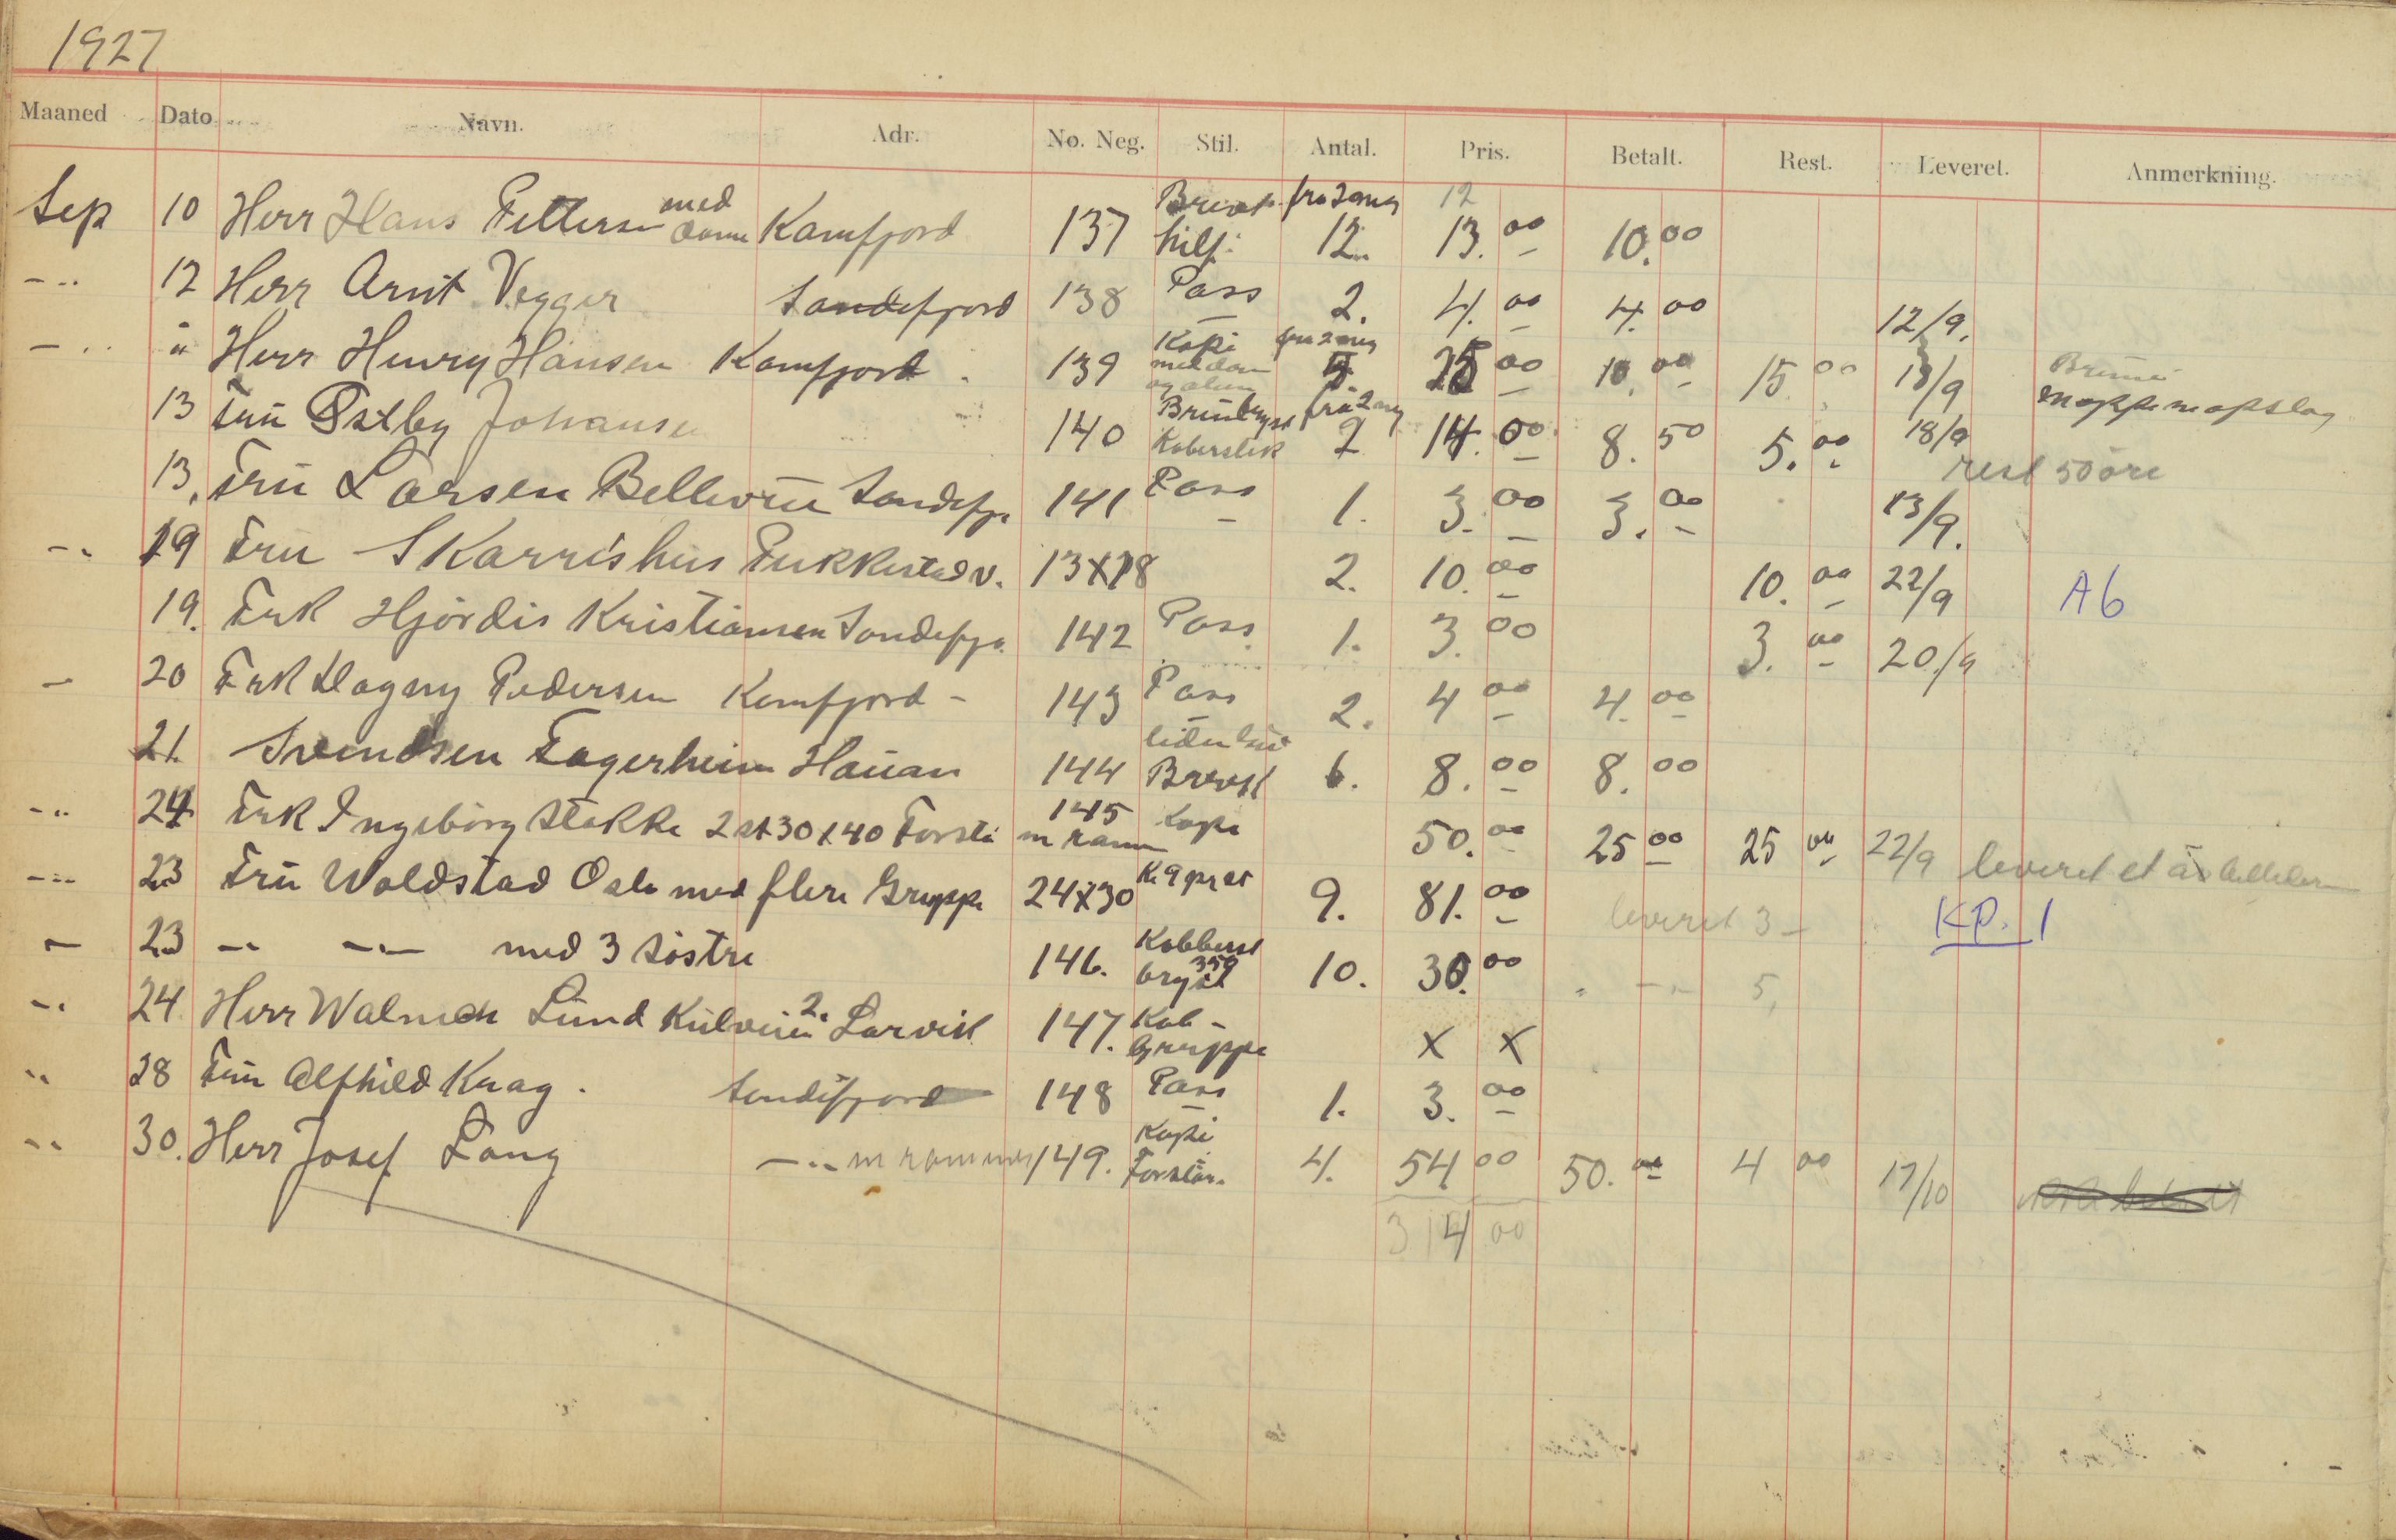 1927
Maaned Dato Navn. Adr. No. Neg. Stil. Antal. Pris. Betalt. Rest. Leveret. Anmerkning.
Sep 10 Herr Hans Pettersen med dame Kamfjord 137 Brevk. hilf. fra 2 neg 12. 12 13.00 10.00
-·· 12 Herr Arnt Vegger Sandefjord 138 Pass 2. 4.00 4.00 12/9.
-·· " Herr Henry Hansen Kamfjord 139 Kopi fra 2 neg 25 00 10.00 15 00 13/9 mappe m opslag
13 Frü Østby Johansen 140 fra 2 neg 2 14.00 8.50 5.00 18/9 rest 50 öre
13. Frü Larsen Bellevüe Sandefj. 141 Pass 1. 3.00 3.00 13/9.
-·· 19 Frü Skarrishus Pukkestad v. 13X18 2. 10.00 10.00 22/9 A6
19. Frk Hjördis Kristiansen Sandefjo. 142 Pass. 1. 3.00 3.00 20/9
- 20 Frk Dagny Pedersen Kamfjord - 143 Pass 2. 4 00 4.00
21. Svendsen Fagerheim Haüan 144 Brevk 6. 8.00 8.00
-·· 24 Frk Ingebörg Stakke 2 st 30x40 Forstö m ramm 145 Kopi 50.00 25 00 25 00 22/9 leveret et
-·· 23 Frü Woldstad Oslo med flere Gruppe 24X30 9. 81.00 leveret 3 - KP. 1
- 23 -·· -·- med 3 söstre 146. Kobberst bryst 10. 30.00 -·- 5,
-·· 24 Herr Lünd 2. Larvik 147. Kob - Gruppe X X
-·· 28 Frü Alfhild Krag. Sandefjord 148 Pass 1. 3.00
-·· 30. Herr Josef Lang -·· m rammer 149. Kopi Forstör. 4. 54 00 50.00 4 00 17/10
314 00